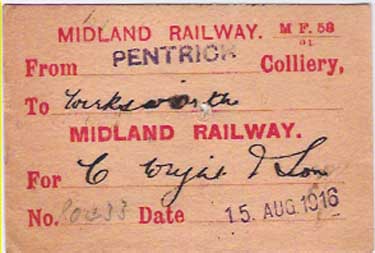 MIDLAND RAILWAY. M F. 58
From PENTRICH Colliery,
To Wirksworth
MIDLAND RAILWAY.
For C Wright & Son
No. Date 15. AUG. 1916